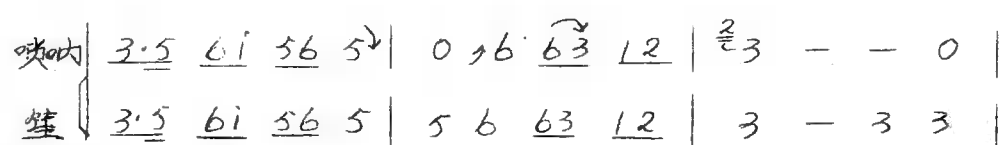 唢呐 | 3·5 6i 56 5 | 0 , 6· 63 12 | 2 3 — — 0 |
笙 | 3·5 6i 56 5 | 5 6 63 12 | 3 — 3 3 |